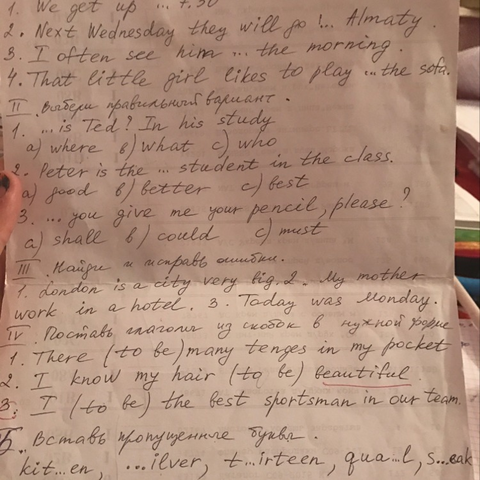 1. We get up ... 7.30
2. Next Wednesday they will go ... Almaty.
3. I often see him ... the morning.
4. That little girl likes to play ... the sofa.
II. Выбери правильный вариант.
1. ... is Ted? In his study
a) where b) what c) who
2. Peter is the ... student in the class.
a) good b) better c) best
3. ... you give me your pencil, please?
a) shall b) could c) must
III. Найди и исправь ошибки.
1. London is a city very big. 2. My mother
work in a hotel. 3. Today was Monday.
IV. Поставь глаголы из скобок в нужной форме
1. There (to be) many tenges in my pocket
2. I know my hair (to be) beautiful
3. I (to be) the best sportsman in our team.
Вставь пропущенные буквы.
kit...en, ...ilver, t...irteen, qua...l, s...eak